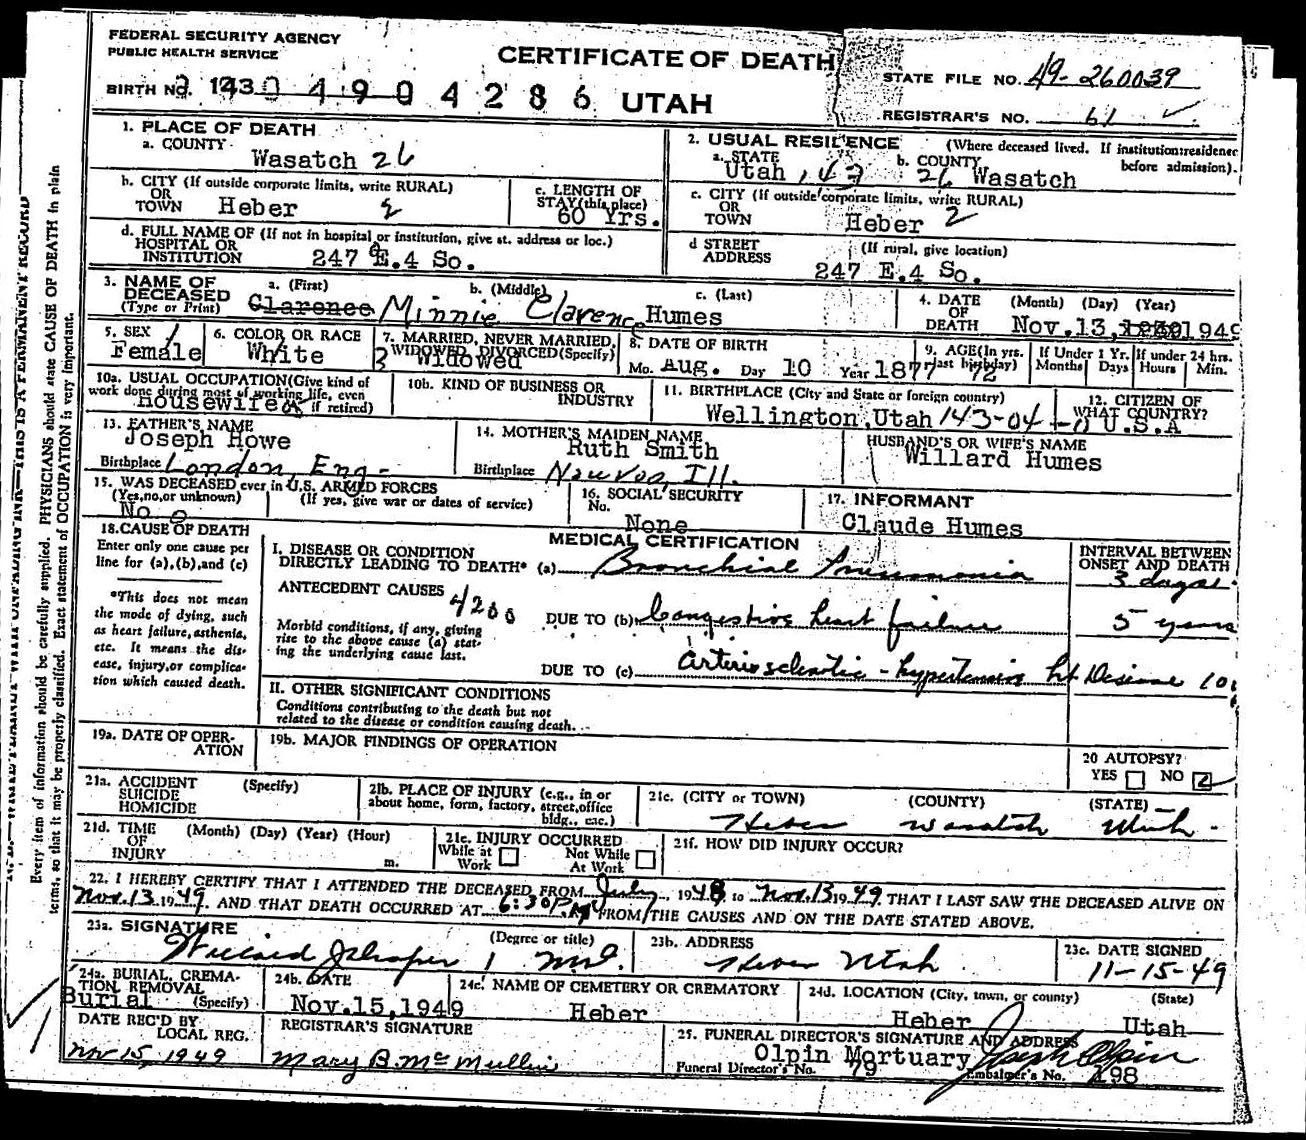 FEDERAL SECURITY AGENCY
PUBLIC HEALTH SERVICE
CERTIFICATE OF DEATH
STATE FILE NO. 49-260039
BIRTH NO. 1430 4904286 UTAH
REGISTRAR'S NO. 61
1. PLACE OF DEATH
a. COUNTY Wasatch 26
2. USUAL RESIDENCE (Where deceased lived. If institution: residence before admission).
a. STATE Utah, 43 b. COUNTY 26 Wasatch
b. CITY (If outside corporate limits, write RURAL) OR TOWN Heber 2
c. LENGTH OF STAY (this place) 60 Yrs.
c. CITY (If outside corporate limits, write RURAL) OR TOWN Heber 2
d. FULL NAME OF (If not in hospital or institution, give st. address or loc.) HOSPITAL OR INSTITUTION 247 E.4 So.
d STREET ADDRESS (If rural, give location) 247 E.4 So.
3. NAME OF DECEASED (Type or Print) a. (First) b. (Middle) c. (Last)
Clarence Minnie Clarence Humes
4. DATE OF DEATH (Month) (Day) (Year) Nov.13, 1949
5. SEX 1 Female
6. COLOR OR RACE White
7. MARRIED, NEVER MARRIED, WIDOWED, DIVORCED (Specify) 3 Widowed
8. DATE OF BIRTH Mo. Aug. Day 10 Year 1877
9. AGE (In yrs. last birthday) 72
If Under 1 Yr. Months Days
If under 24 hrs. Hours Min.
10a. USUAL OCCUPATION (Give kind of work done during most of working life, even if retired) Housewife
10b. KIND OF BUSINESS OR INDUSTRY
11. BIRTHPLACE (City and State or foreign country) Wellington, Utah 143-04
12. CITIZEN OF WHAT COUNTRY? U.S.A
13. FATHER'S NAME Joseph Howe
Birthplace London, Eng-
14. MOTHER'S MAIDEN NAME Ruth Smith
Birthplace Nauvoo, Ill.
HUSBAND'S OR WIFE'S NAME Willard Humes
15. WAS DECEASED ever in U.S. ARMED FORCES (Yes, no, or unknown) (If yes, give war or dates of service)
No 0
16. SOCIAL SECURITY No. None
17. INFORMANT Claude Humes
18. CAUSE OF DEATH
Enter only one cause per line for (a), (b), and (c)
*This does not mean the mode of dying, such as heart failure, asthenia, etc. It means the disease, injury, or complication which caused death.
MEDICAL CERTIFICATION
INTERVAL BETWEEN ONSET AND DEATH
I. DISEASE OR CONDITION DIRECTLY LEADING TO DEATH* (a) Bronchial Pneumonia 3 days
ANTECEDENT CAUSES 4200
Morbid conditions, if any, giving rise to the above cause (a) stating the underlying cause last.
DUE TO (b) Congestive heart failure 5 years
DUE TO (c) Arteriosclerotic - hypertensive ht Disease 10
II. OTHER SIGNIFICANT CONDITIONS
Conditions contributing to the death but not related to the disease or condition causing death.
19a. DATE OF OPERATION
19b. MAJOR FINDINGS OF OPERATION
20 AUTOPSY? YES NO
21a. ACCIDENT SUICIDE HOMICIDE (Specify)
21b. PLACE OF INJURY (e.g., in or about home, form, factory, street, office bldg., etc.)
21c. (CITY or TOWN) (COUNTY) (STATE)
Heber Wasatch Utah
21d. TIME OF INJURY (Month) (Day) (Year) (Hour) m.
21e. INJURY OCCURRED While at Work Not While At Work
21f. HOW DID INJURY OCCUR?
22. I HEREBY CERTIFY THAT I ATTENDED THE DECEASED FROM July, 1948 to Nov.13 1949 THAT I LAST SAW THE DECEASED ALIVE ON
Nov.13 1949, AND THAT DEATH OCCURRED AT 6:30P.M FROM THE CAUSES AND ON THE DATE STATED ABOVE.
23a. SIGNATURE (Degree or title) M.D.
23b. ADDRESS Heber Utah
23c. DATE SIGNED 11-15-49
24a. BURIAL, CREMATION REMOVAL (Specify) Burial
24b. DATE Nov.15,1949
24c. NAME OF CEMETERY OR CREMATORY Heber
24d. LOCATION (City, town, or county) (State) Heber Utah
DATE REC'D BY LOCAL REG. Nov 15, 1949
REGISTRAR'S SIGNATURE Mary B. McMullin
25. FUNERAL DIRECTOR'S SIGNATURE AND ADDRESS
Olpin Mortuary
Funeral Director's No. 79 Embalmer's No. 198
Every item of information should be carefully supplied. PHYSICIANS should state CAUSE OF DEATH in plain
terms, so that it may be properly classified. Exact statement of OCCUPATION is very important.